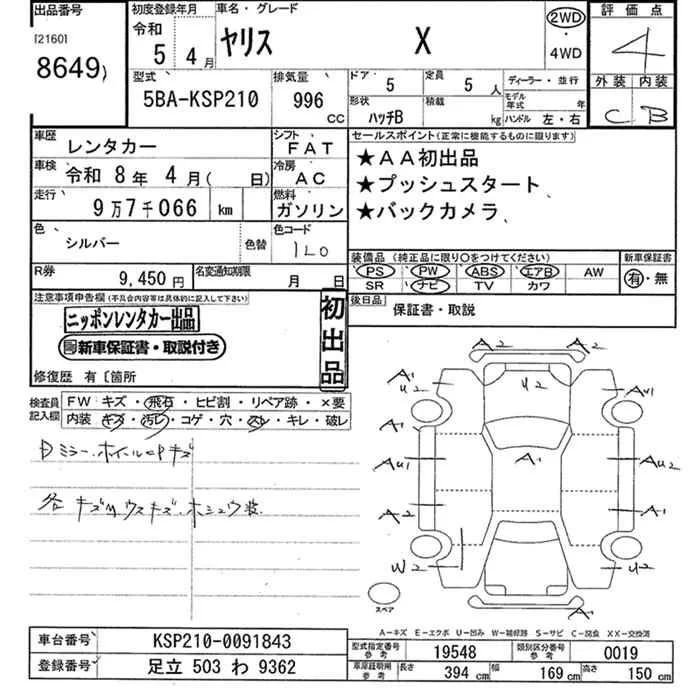 出品番号
[2160]
8649)
初度登録年月
令和
5 4月
車名・グレード
ヤリス X
2WD
・
4WD
評価点
4
型式
5BA-KSP210
排気量
996
CC
ドア
5
定員
5 人
形状
ハッチB
積載
kg
ディーラー・並行
モデル年式 年
ハンドル 左・右
外装 内装
C B
車歴
レンタカー
シフト
FAT
セールスポイント(正常に機能するものに限ります)
★AA初出品
★プッシュスタート
★バックカメラ
車検
令和 8年 4月( 日)
冷房
AC
走行
9万7千066 km
燃料
ガソリン
色
シルバー
色替
色コード
1L0
装備品(純正品に限り○をつけてください)
PS PW ABS エアB AW
SR ナビ TV カワ
新車保証書
有・無
R券
9,450円
名変通知期限
月 日
後日品
保証書・取説
注意事項申告欄(不具合内容等は具体的に記入して下さい)
ニッポンレンタカー出品
新車保証書・取説付き
初出品
修復歴 有〔箇所
検査員記入欄
FW キズ・飛石・ヒビ割・リペア跡・×要
内装・キズ・汚レ・コゲ・穴・スレ・キレ・破レ
ミラー・ホイールCPキズ
各 キズ ウスキズ・ホシュウ
A2 A2
A1 U2 U2 AU1
A1
AU1 AU2
A2 A1
W2 U2
A1
スペア
A-キズ E-エクボ U-凹み W-補修跡 S-サビ C-腐食 XX-交換済
車台番号
KSP210-0091843
型式指定番号
参考
19548
類別区分番号
参考
0019
登録番号
足立 503 わ 9362
車庫証明用
参考
長さ 394 cm 幅 169 cm 高さ 150 cm